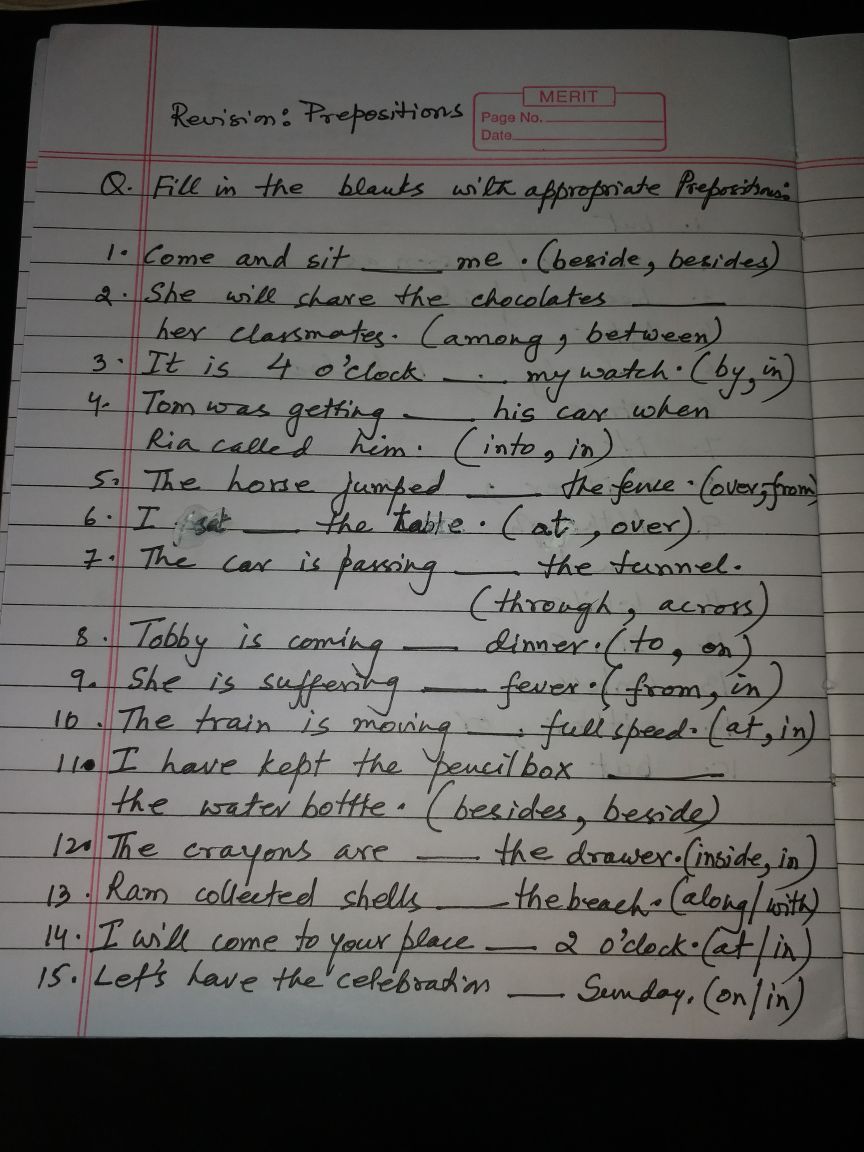 Revision: Prepositions
MERIT
Page No.
Date
Q. Fill in the blanks with appropriate Prepositions:
1. Come and sit ____ me. (beside, besides)
2. She will share the chocolates ____
her classmates. (among, between)
3. It is 4 o'clock ____ my watch. (by, in)
4. Tom was getting ____ his car when
Ria called him. (into, in)
5. The horse jumped ____ the fence. (over, from)
6. I sat ____ the table. (at, over)
7. The car is passing ____ the tunnel.
(through, across)
8. Tobby is coming ____ dinner. (to, on)
9. She is suffering ____ fever. (from, in)
10. The train is moving ____ full speed. (at, in)
11. I have kept the pencil box ____
the water bottle. (besides, beside)
12. The crayons are ____ the drawer. (inside, in)
13. Ram collected shells ____ the beach. (along/with)
14. I will come to your place ____ 2 o'clock. (at/in)
15. Let's have the celebration ____ Sunday. (on/in)